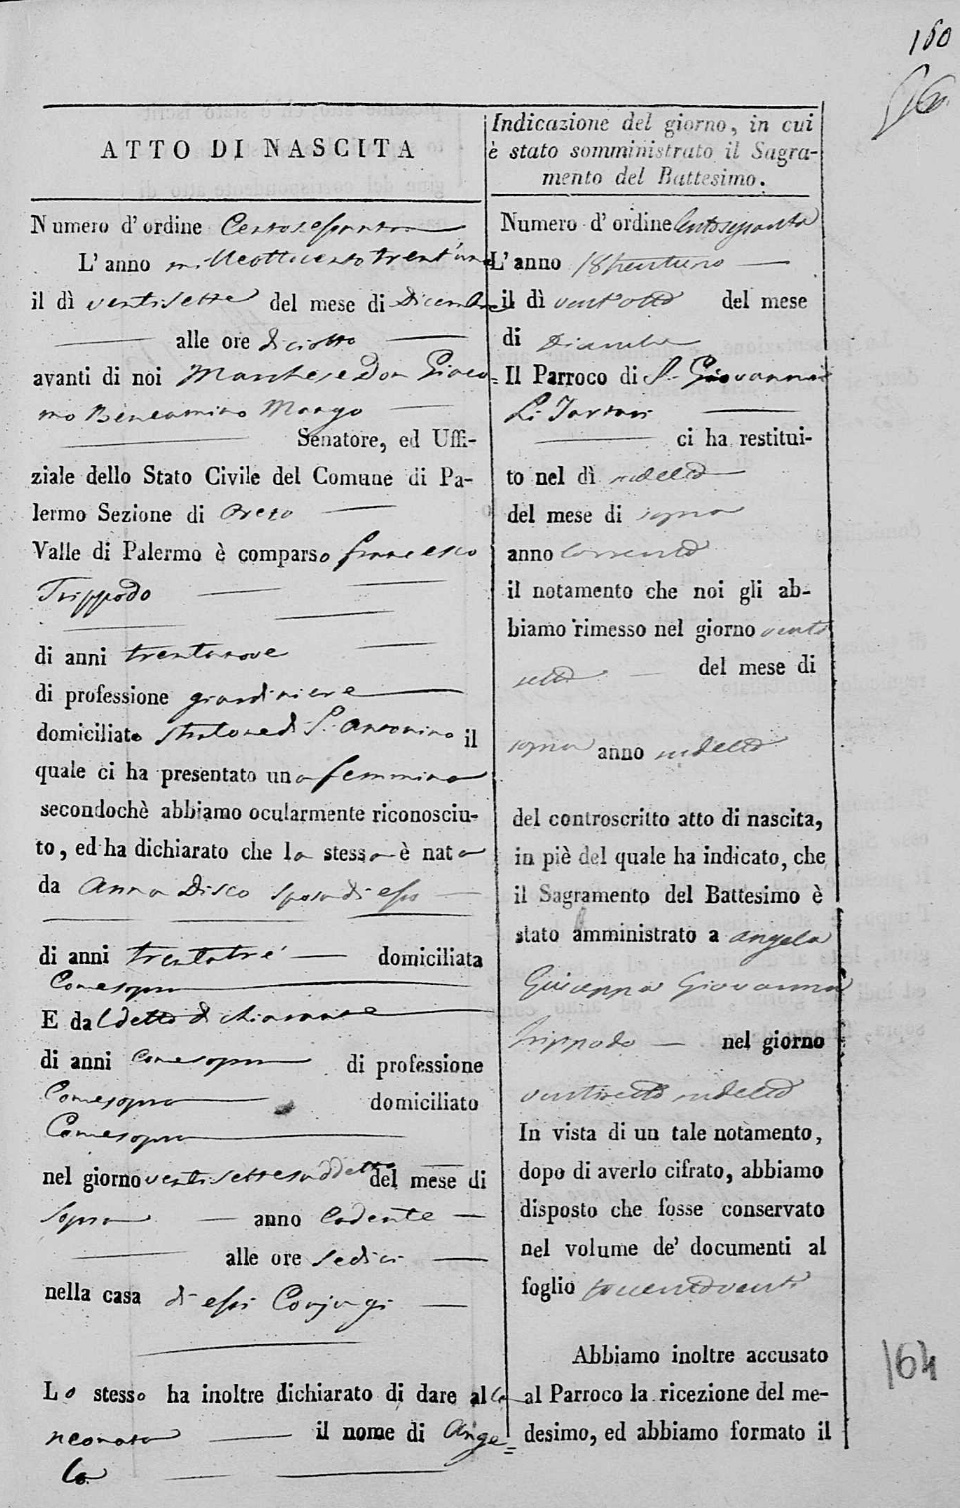 160
ATTO DI NASCITA
Numero d'ordine Centosessanta
L'anno milleottocentotrent'uno
il dì ventisette del mese di Dicembre
alle ore diciotto
avanti di noi Marchese Don Giaco=
mo Beniamino Mango
Senatore, ed Uffi-
ziale dello Stato Civile del Comune di Pa-
lermo Sezione di Oreto
Valle di Palermo è comparso Francesco
Trippodo
di anni trentanove
di professione giardiniere
domiciliato Stradone di S. Antonino il
quale ci ha presentato una femmina
secondochè abbiamo ocularmente riconosciu-
to, ed ha dichiarato che la stessa è nata
da Anna Disco sposa di esso
di anni trentatrè domiciliata
Comesopra
E dal detto dichiarante
di anni comesopra di professione
Comesopra domiciliato
Comesopra
nel giorno ventisettesuddetto del mese di
Sopra anno Cadente
alle ore sedici
nella casa di essi Conjugi
Lo stesso ha inoltre dichiarato di dare alla
neonata il nome di Ange=
la
Indicazione del giorno, in cui
è stato somministrato il Sagra-
mento del Battesimo.
Numero d'ordine Centosessanta
L'anno 18trentuno
il dì ventotto del mese
di Dicembre
Il Parroco di S. Giovanni
Li Tartari
ci ha restitui-
to nel dì indetto
del mese di sopra
anno corrente
il notamento che noi gli ab-
biamo rimesso nel giorno venti
sette del mese di
sopra anno indetto
del controscritto atto di nascita,
in piè del quale ha indicato, che
il Sagramento del Battesimo è
stato amministrato a Angela
Giuseppa Giovanna
Trippodo nel giorno
ventisette indetto
In vista di un tale notamento,
dopo di averlo cifrato, abbiamo
disposto che fosse conservato
nel volume de' documenti al
foglio trecentoventi
Abbiamo inoltre accusato
al Parroco la ricezione del me-
desimo, ed abbiamo formato il
164